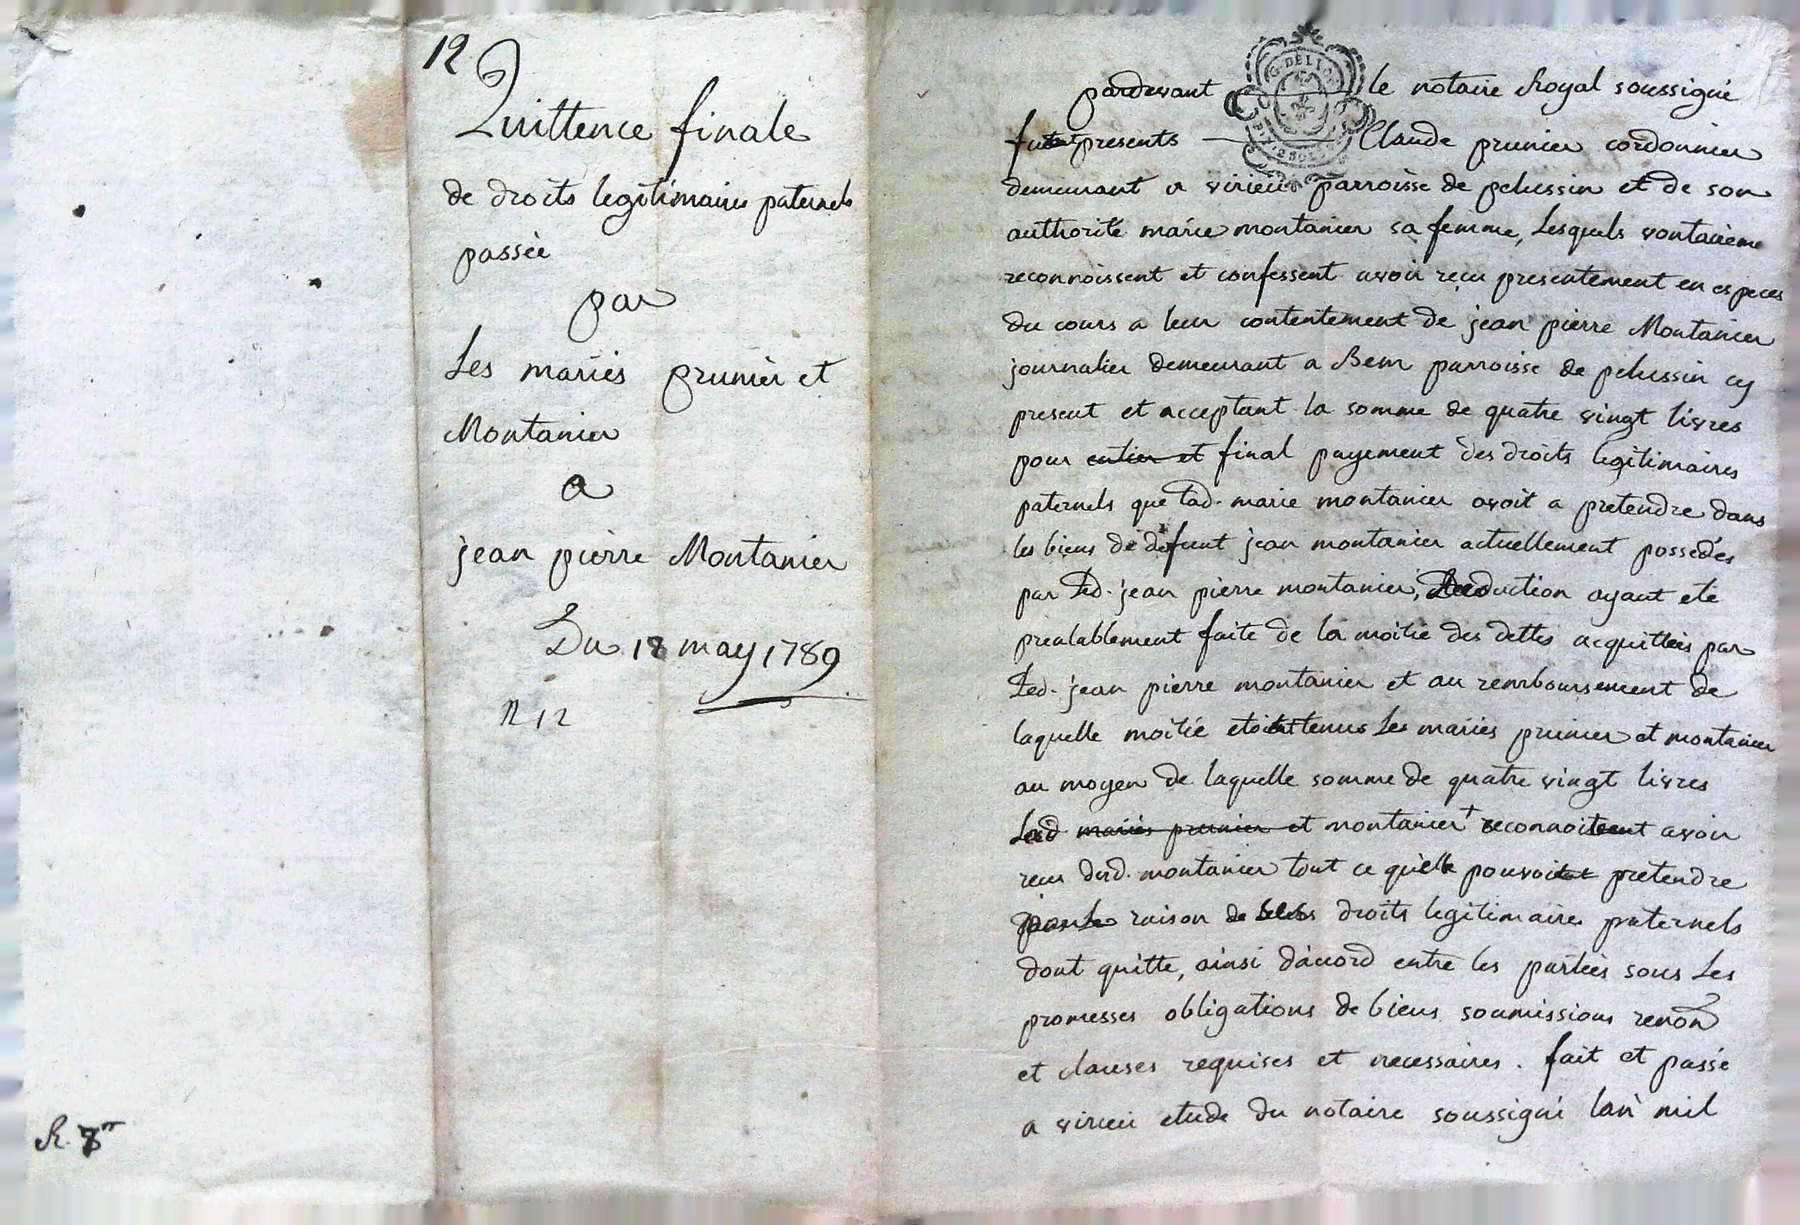 12
Quittence finale
de droits legitimaires paternels
passée
par
Les mariés prunier et
Montanier
a
jean pierre Montanier
Du 18 may 1789
n 12
R. 7
pardevant le notaire Royal soussigné
furent presents Claude prunier cordonnier
demeurant a virieu parroisse de pelussin et de son
authorité marie montanier sa femme, Lesquels
reconnoissent et confessent avoir reçu presentement en especes
du cours a leur contentement de jean pierre Montanier
journalier demeurant a Bem parroisse de pelussin cy
present et acceptant la somme de quatre vingt livres
pour entier et final payement des droits legitimaires
paternels que lad. marie montanier avoit a pretendre dans
les biens de defunt jean montanier actuellement possedés
par Led. jean pierre montanier, Deduction ayant eté
prealablement faite de la moitié des dettes acquittées par
Led. jean pierre montanier et au remboursement de
laquelle moitié tenus Les mariés prunier et montanier
au moyen de laquelle somme de quatre vingt livres
Lad mariés prunier et montanier + avoir
recu dud. montanier tout ce qu'elle pretendre
raison de droits legitimaires paternels
dont quitte, ainsi d'accord entre les parties sous Les
promesses obligations de biens soumissions renon
et clauses requises et necessaires. fait et passé
a virieu etude du notaire soussigné lan mil